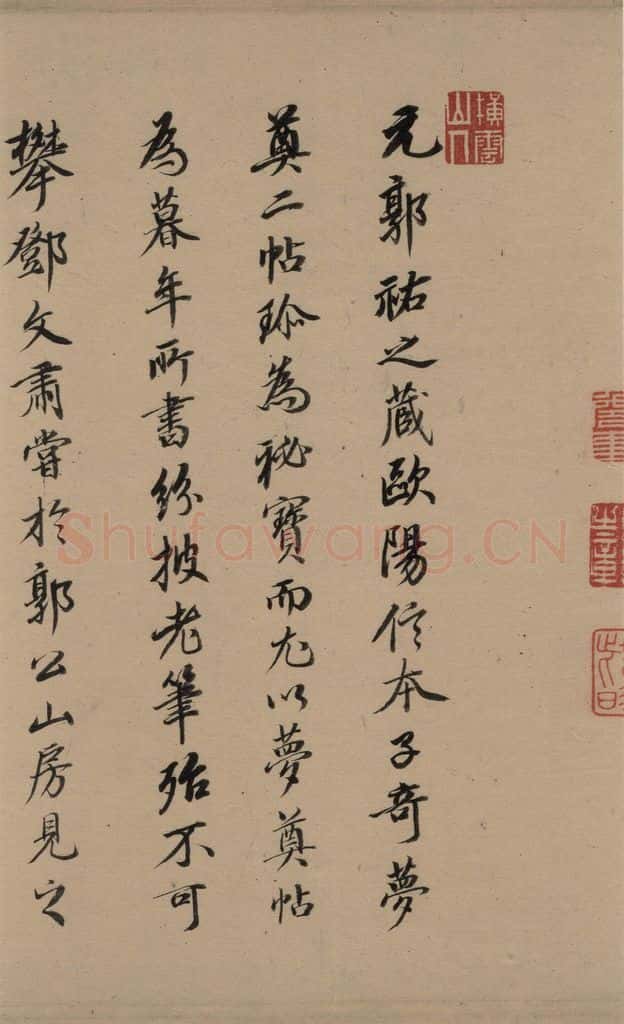 元郭祐之蔵歐陽信本子奇夢
奠二帖珎為祕寶而尤以夢奠帖
為暮年所書紛披老筆殆不可
攀鄧文肅嘗於郭公山房見之
橫雲山人
Shufawang.CN